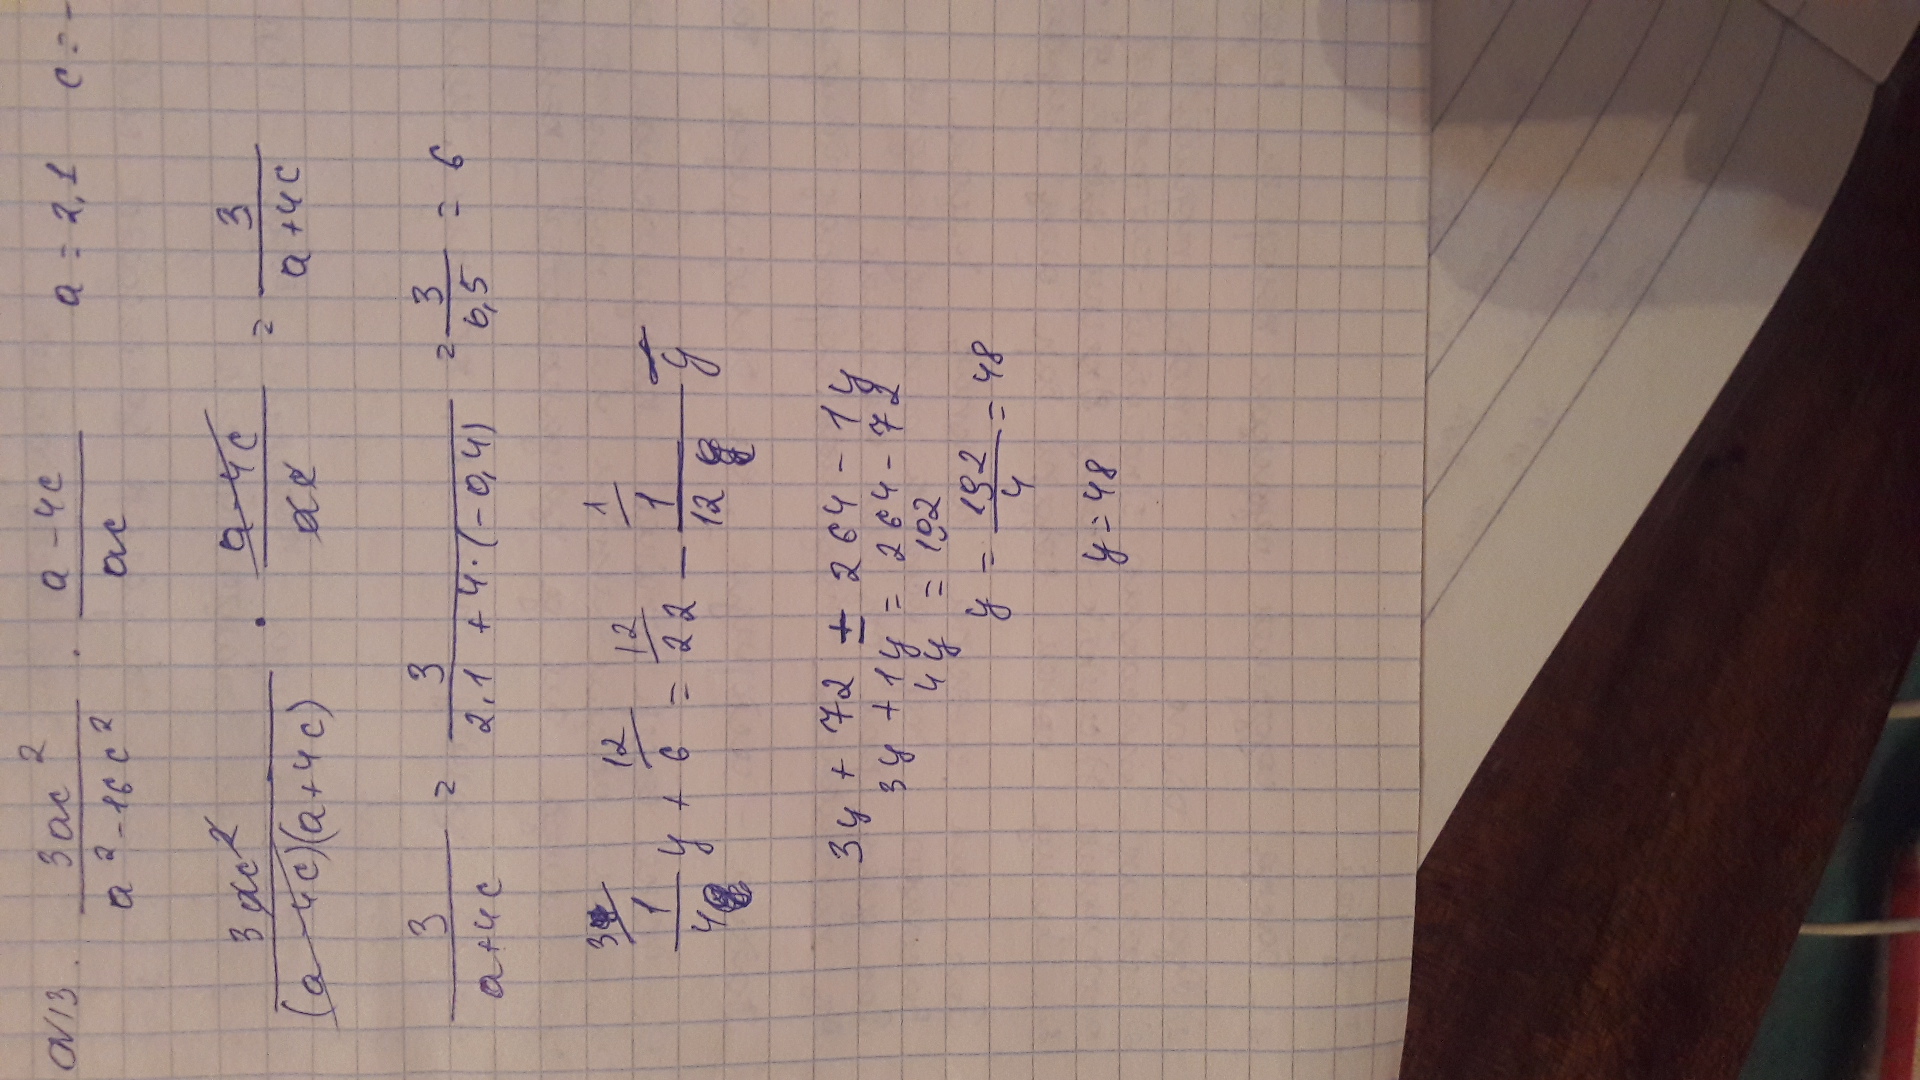 N13. 3ac²/(a²-16c²) · (a-4c)/ac a=2,1 c=-
3ac²/((a-4c)(a+4c)) · (a-4c)/ac = 3/(a+4c)
3/(a+4c) = 3/(2,1+4·(-0,4)) = 3/0,5 = 6
3/ 1/4 y + 12/ 6 = 12/ 22 - 1/ 1/12 y
3y + 72 = 264 - 1y
3y + 1y = 264 - 72
4y = 192
y = 192/4 = 48
y = 48